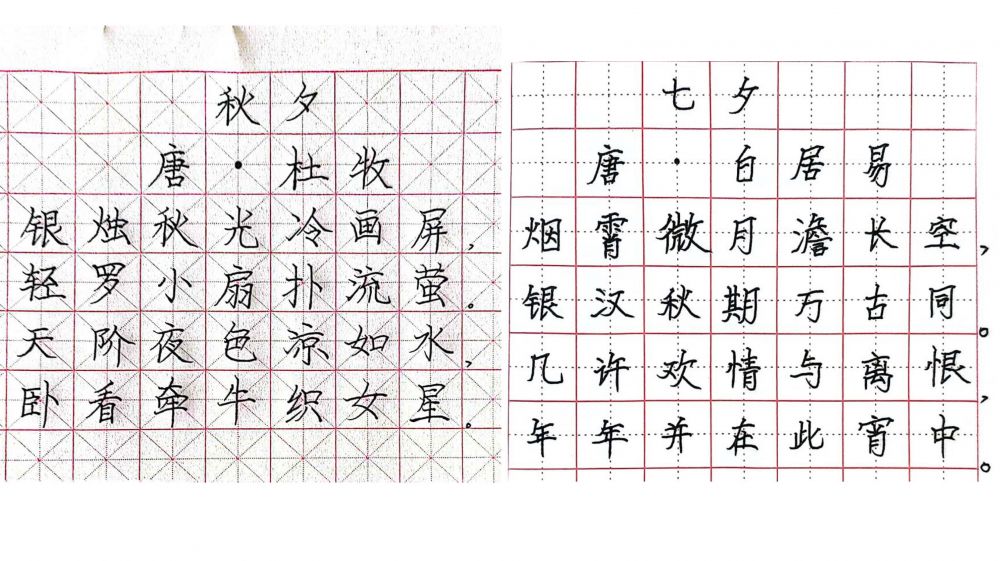 秋夕
唐·杜牧
银烛秋光冷画屏,
轻罗小扇扑流萤。
天阶夜色凉如水,
卧看牵牛织女星。
七夕
唐·白居易
烟霄微月澹长空,
银汉秋期万古同。
几许欢情与离恨,
年年并在此宵中。